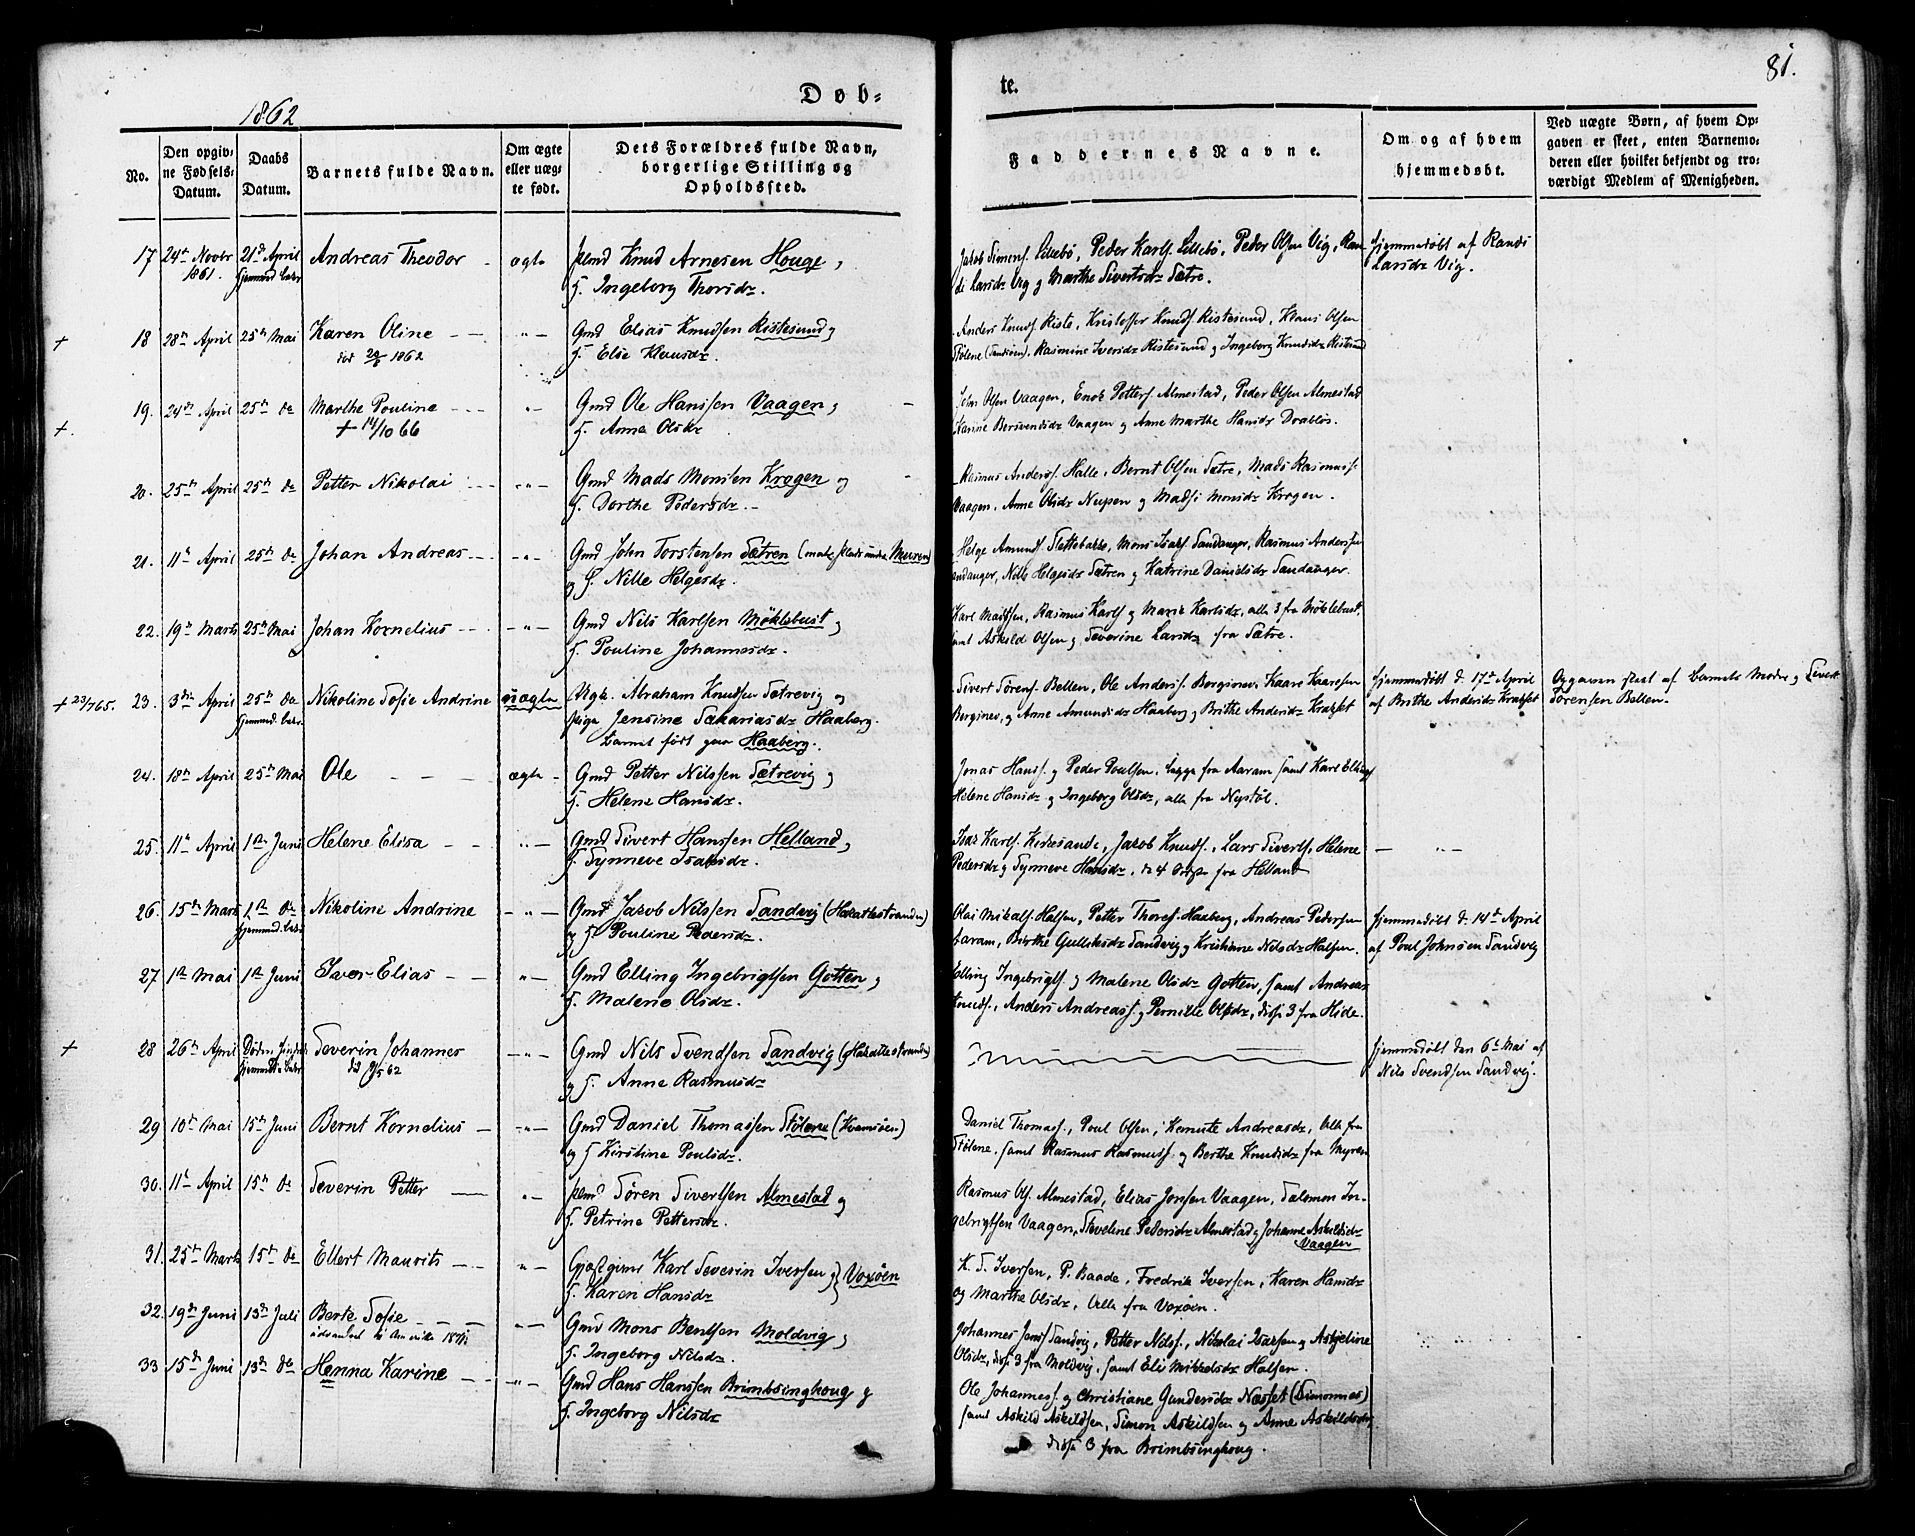 81.
1862
Døb-
te.
No.
Den opgiv-
ne Fødsels-
Datum.
Daabs
Datum.
Barnets fulde Navn.
Om ægte
eller uæg-
te født.
Dets Forældres fulde Navn,
borgerlige Stilling og
Opholdssted.
Faddernes Navne.
Om og af hvem
hjemmedøbt.
Ved uægte Børn, af hvem Op-
gaven er skeet, enten Barnemo-
deren eller hvilket bekjendt og tro-
værdigt Medlem af Menigheden.
17 24de Novbr 1861. 21de April Andreas Theodor ægte Knud Arnesen Houge,
G. Ingeborg Thorsdr.
Jakob Simens. Lillebø, Peder Karls. Lillebø, Peder Olsen Vig, Ran-
di Larsdr Vig og Marthe Sivertsdr Sætre.
Hjemmedøbt af Randi
Larsdr Vig.
+ 18 28de April 25de Mai Karen Oline -"- Gmd Elias Knudsen Ristesund og
død 1862 G. Elie Klausdr.
Anders Knuds. Riste, Kristoffer Knuds. Ristesund, Klaus Olsen
Stølene (Sandsøen), Rasmine Iversdr Ristesund og Ingeborg Knudsdr Ristesund
+. 19. 24de April 25de do Marthe Pouline -"- Gmd Ole Hanssen Vaagen,
+ 14/10 66 G. Anne Olsdr
John Olsen Vaagen, Enok Petters. Almestad, Peder Olsen Almestad
Karine Bersvendsdr Vaagen og Anne Marthe Hansdr Drabløs.
20. 25de April 25de do Petter Nikolai -"- Gmd Mads Monsen Kragen og
G. Dorthe Pedersdr.
Rasmus Anderss. Halle, Bernt Olsen Sætre, Mads Rasmuss.
Vaagen, Anne Olsdr Nupen og Madsi Monsdr Kragen.
21. 11te April 25de do Johan Andreas -"- Gmd John Torstensen Sætren (Plads under Muren)
og G. Nille Helgesdr.
Helge Amunds. Slettebakke, Mons Isaks. Sandanger, Rasmus Andersen
Sandanger, Nille Helgesdr Sætren og Katrine Danielsdr Sandanger.
22. 19de Marts 25de Mai Johan Kornelius -"- Gmd Nils Karlsen Møklebust og
G. Pouline Johannesdr.
Karl Madssen, Rasmus Karls. og Marie Karlsdr, alle 3 fra Møklebust,
samt Askild Olsen og Severine Larsdr fra Sætre.
+ 23/7 65. 23. 3die April 25de do Nikoline Sofie Andrine uægte Ungk. Abraham Knudsen Sætrevig og
Pige Jensine Sakariasdr Haaberg.
Barnet født paa Haaberg.
Sivert Sørens. Bellen, Ole Anderss. Berginev, Kaare Kaaresen
Berginev, og Anne Amundsdr Haaberg og Brithe Andersdr Kragset
Hjemmedøbt d. 17de April
af Brithe Andersdr Kragset
Opgaven skeet af barnets Moder og Sivert
Sørensen Bellen.
24. 18de April 25de Mai Ole ægte Gmd Petter Nilssen Sætrevig og
G. Helene Hansdr.
Jonas Hans. og Peder Poulsen, begge fra Aaram samt Karl Ellings.
Helene Hansdr og Ingeborg Olsdr, alle fra Nystøl.
25. 11te April 1ste Juni Helene Elisa -"- Gmd Sivert Hanssen Helland og
G. Synneve Isaksdr.
Isak Karls. Kirkesande, Jakob Knuds., Lars Siverts., Helene
Pedersdr og Synneve Hansdr, de 4 fra Helland
- "-
26. 15de Marts 1ste do Nikoline Andrine -"- Gmd Jakob Nilssen Sandvig (Hakallestranden)
og G. Pouline Pedersdr.
Olai Mikals. Halsen, Petter Thores. Haaberg, Andreas Pedersen
Aaram, Birthe Gulleksdr Sandvig og Kristiane Nilsdr Halsen.
Hjemmedøbt d. 14de April
af Poul Johnsen Sandvig
27 1ste Mai 1ste Juni Iver Elias -"- Gmd Elling Ingebrigtsen Gotten og
G. Malene Olsdr.
Elling Ingebrigts. og Malene Olsdr Gotten, samt Andreas
Knuds., Anders Andreass. og Pernille Olsdr, disse 3 fra Hide.
+ 28 26de April Severin Johannes -"- Gmd Nils Svendsen Sandvig (Hakallestranden)
og G. Anne Rasmusdr
Hjemmedøbt den 6te Mai af
Nils Svendsen Sandvig.
29 10de Mai 15de Juni Bernt Kornelius -"- Gmd Daniel Thomassen Stølene (Kvamsøen)
og G Kirstine Poulsdr.
Daniel Thomass., Poul Olsen, Andreasdr, Alle fra
Stølene, samt Rasmus Rasmuss. og Berthe Knudsdr fra Myren
30. 11te April 15de do Severin Petter -"- Søren Sivertsen Almestad og
G. Petrine Pettersdr.
Rasmus Ols. Almestad, Elias Jonsen Vaagen, Salomon In-
gebrigtsen Vaagen, Severine Pedersdr Almestad og Johanne Askildsdr
Vaagen
31. 25de Marts 15de do Ellert Mauvits -"- Karl Severin Iversen og } Voxøen
G. Karen Hansdr
K. S. Iversen, P. Baade, Fredrik Iversen, Karen Hansdr
og Marthe Olsdr, Alle fra Voxøen.
32. 19de Juni 13de Juli Berte Sofie -"- Gmd Mons Bentsen Moldvig,
G. Ingeborg Nilsdr.
Johannes Jens. Sandvig, Petter Nils., Nikolai Isaksen og Askjeline
Olsdr, disse 3 fra Moldvig, samt Eli Mikkelsdr Halsen.
33 15de Juni 13de do Henna Karine -"- Gmd Hans Hanssen Brimbsinghoug og
G. Ingeborg Nilsdr
Ole Johanness. og Christiane Gundersdr Næsset (Simonnes)
samt Askild Askildsen, Simon Askildsen og Anne Askildsdr,
disse 3 fra Brimbsinghoug.